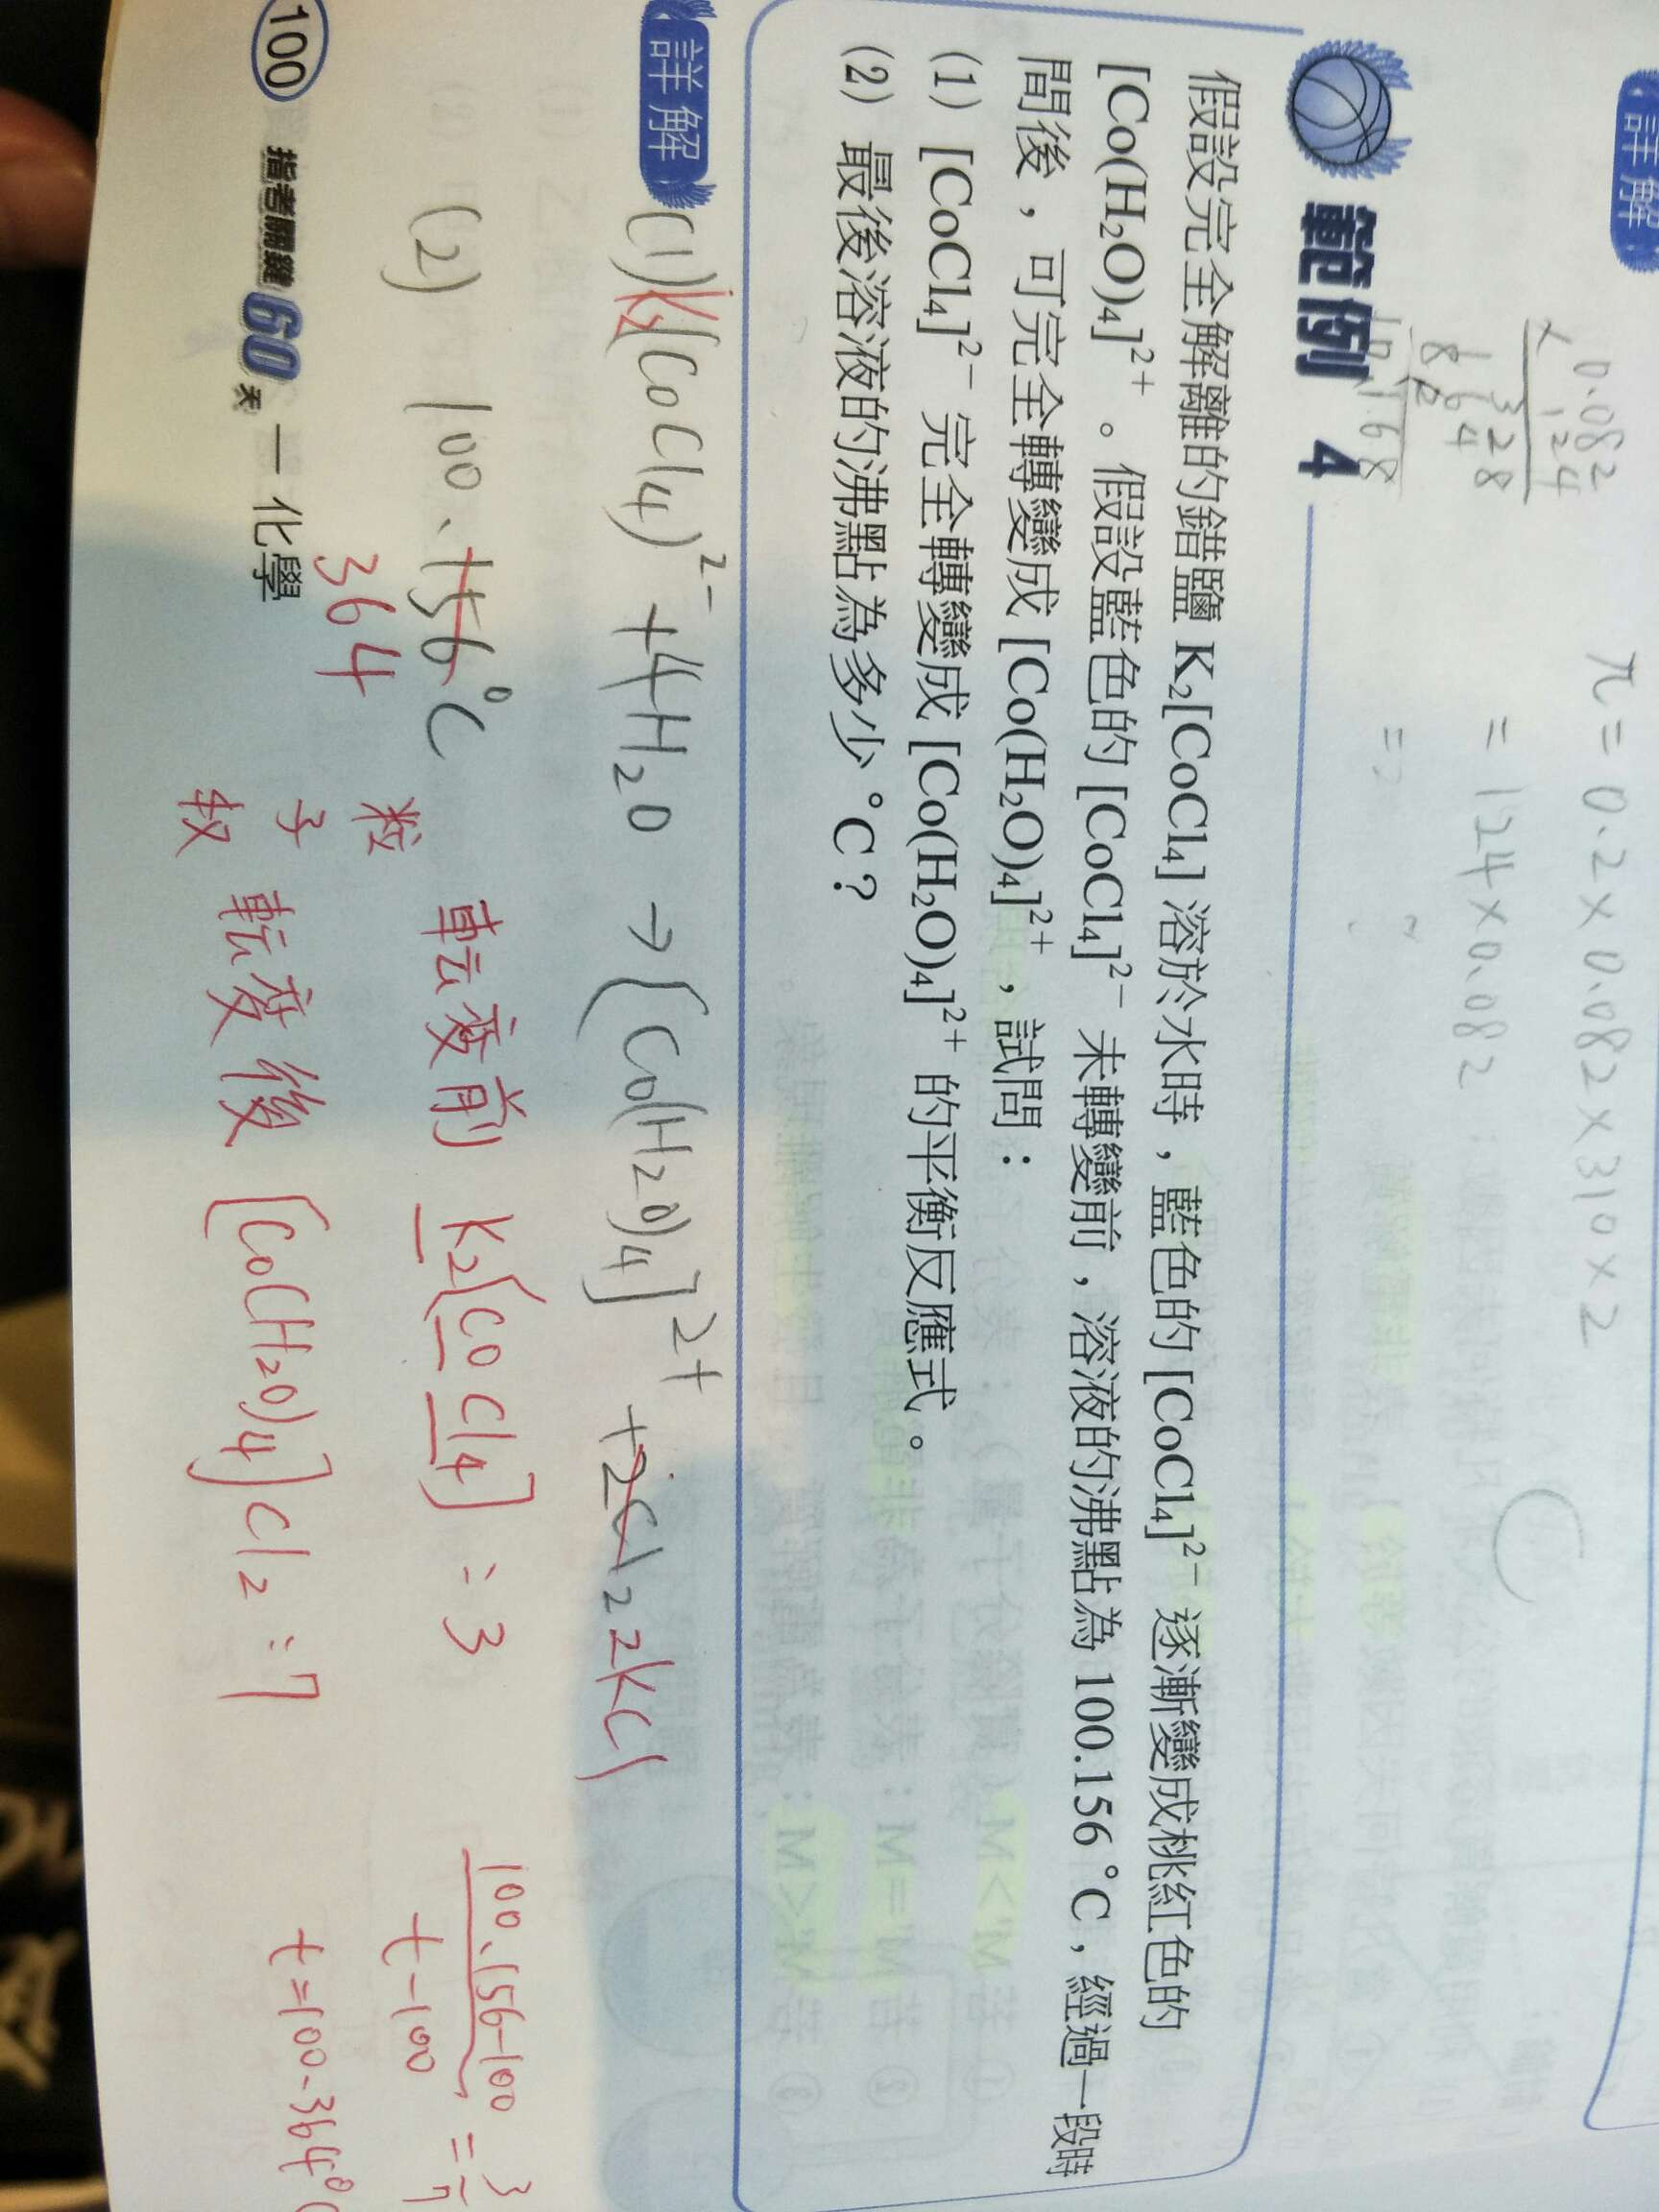 詳解
π = 0.2 × 0.082 × 310 × 2
= 124 × 0.082
=
0.082
× 124
328
164
82
範例 4
假設完全解離的錯鹽 K₂[CoCl₄] 溶於水時，藍色的 [CoCl₄]²⁻ 逐漸變成桃紅色的
[Co(H₂O)₄]²⁺。假設藍色的 [CoCl₄]²⁻ 未轉變前，溶液的沸點為 100.156 °C，經過一段時
間後，可完全轉變成 [Co(H₂O)₄]²⁺，試問：
(1) [CoCl₄]²⁻ 完全轉變成 [Co(H₂O)₄]²⁺ 的平衡反應式。
(2) 最後溶液的沸點為多少 °C？
詳解
(1) K₂[CoCl₄]²⁻ + 4H₂O → [Co(H₂O)₄]²⁺ + 2Cl₂ 2KCl
(2) 100.156°C
364
粒子数
転变前 K₂[CoCl₄] : 3
転变後 [Co(H₂O)₄]Cl₂ : 7
100.156-100
t-100
= 3/7
t=100.364°C
100 指考關鍵60天—化學